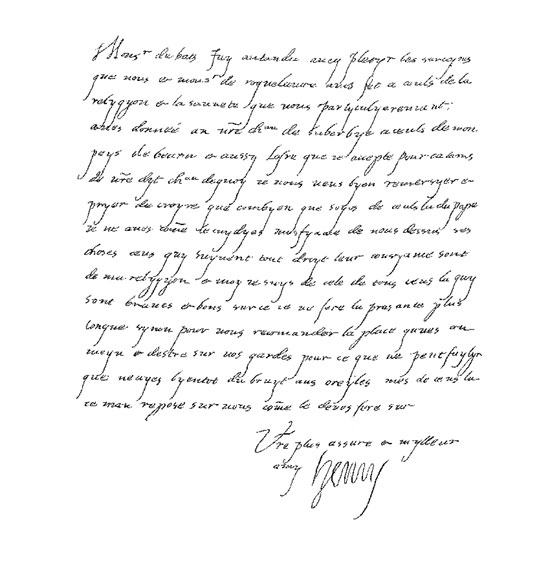 Monsr de bats Jay antandu avec plesyr les servyces
que vous & monsr de roquelaure aves fet a ceuls de la
relygyon & la sauvete que vous partyculyeremant
aves donneé an vre chau de suberbye a ceuls de mon
pays de bearn & aussy lofre que je axepte pour ce tams
de vre dyt chau dequoy je vous veus byen remersyer &
pryer de croyre que combyen que soyes de ceuls la du pape
je ne avos come le cuydyes mesfyance de vous dessus ces
choses ceus quy suyvent tout droyt leur consyance sont
de ma relygyon & moy je suys de cele de tous ceus la quy
sont braves & bons sur ce je ne fere la presante plus
longue synon pour vous recomander la place quaves an
meyn & destre sur vos gardes pour ce que ne peut faylyr
que neayes byentot du bruyt aus oreyles mes de ceus la
je man repose sur vous come le deves fere sur
Vre plus assure & mylleur
amy Henry